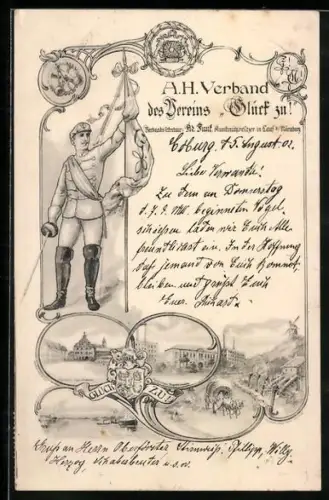 A.H. Verband
des Vereins „Glück zu!"
Verbands-Vors.: Kunstmühlen in Lauf b. Nürnberg
Coburg, d 5. August 02.
Liebe Verwandte!
Zu dem am Donnerstag
d. 7. beginnenden Vogel-
schiessen laden wir Euch Alle
freundlichst ein. In der Hoffnung
daß jemand von Euch kommt,
bleiben mit Gruß Euch
Euer
GLÜCK ZU!
Gruß an Herrn Oberförster Philipp, Willy
Herzog, u.s.w.